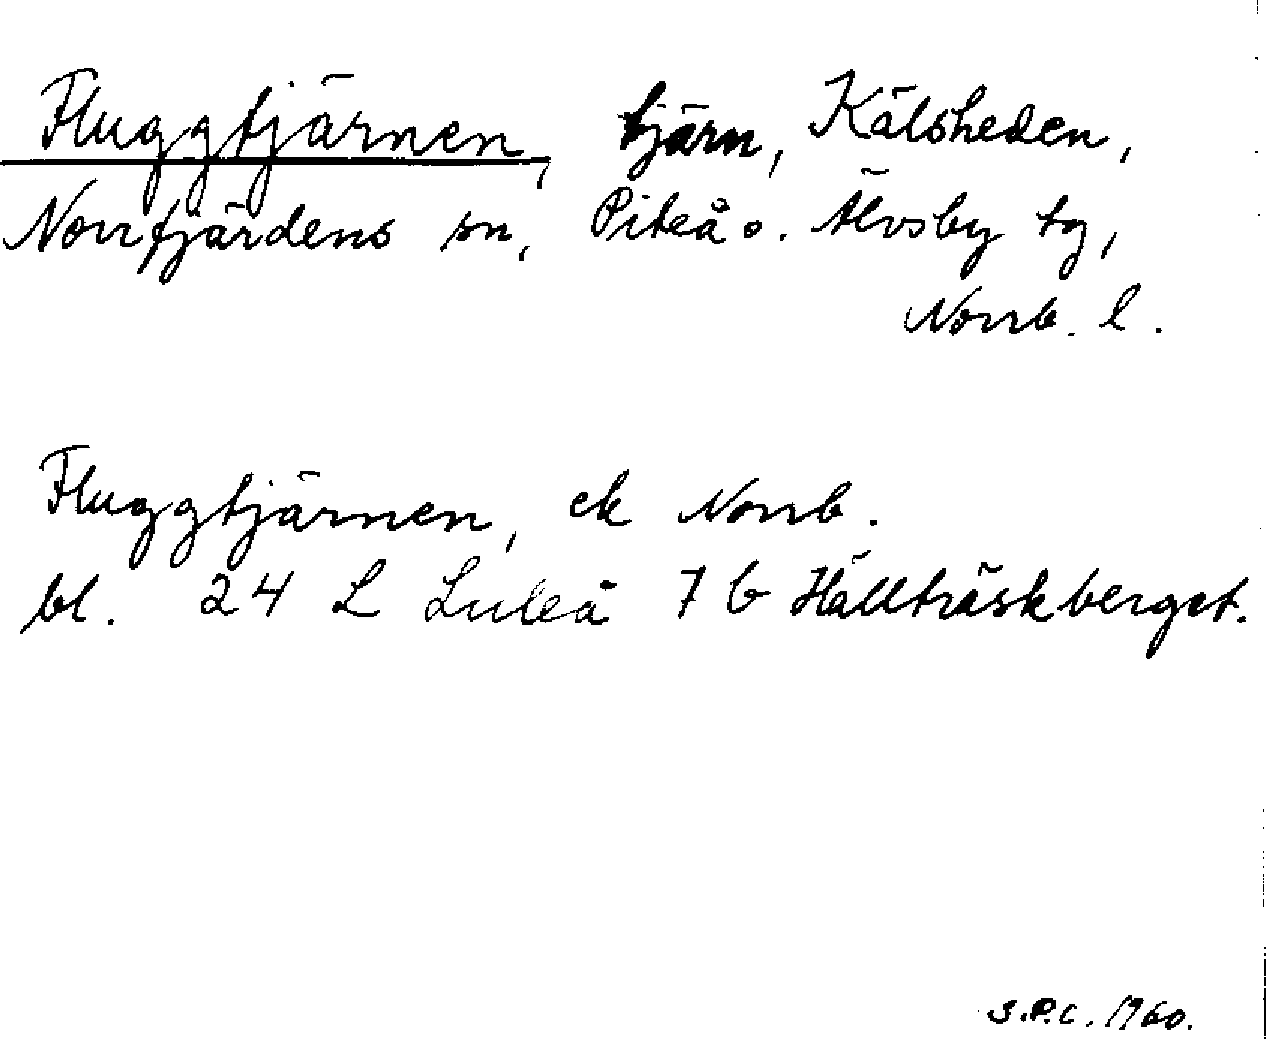 Fluggtjärnen, tjärn, Kälsheden,
Norrfjärdens sn, Piteå o. Älvsby tg,
Norrb. l.
Fluggtjärnen, ek Norrb.
bl. 24 L Luleå 7 b Hällträskberget.
S.P.C. 1960.